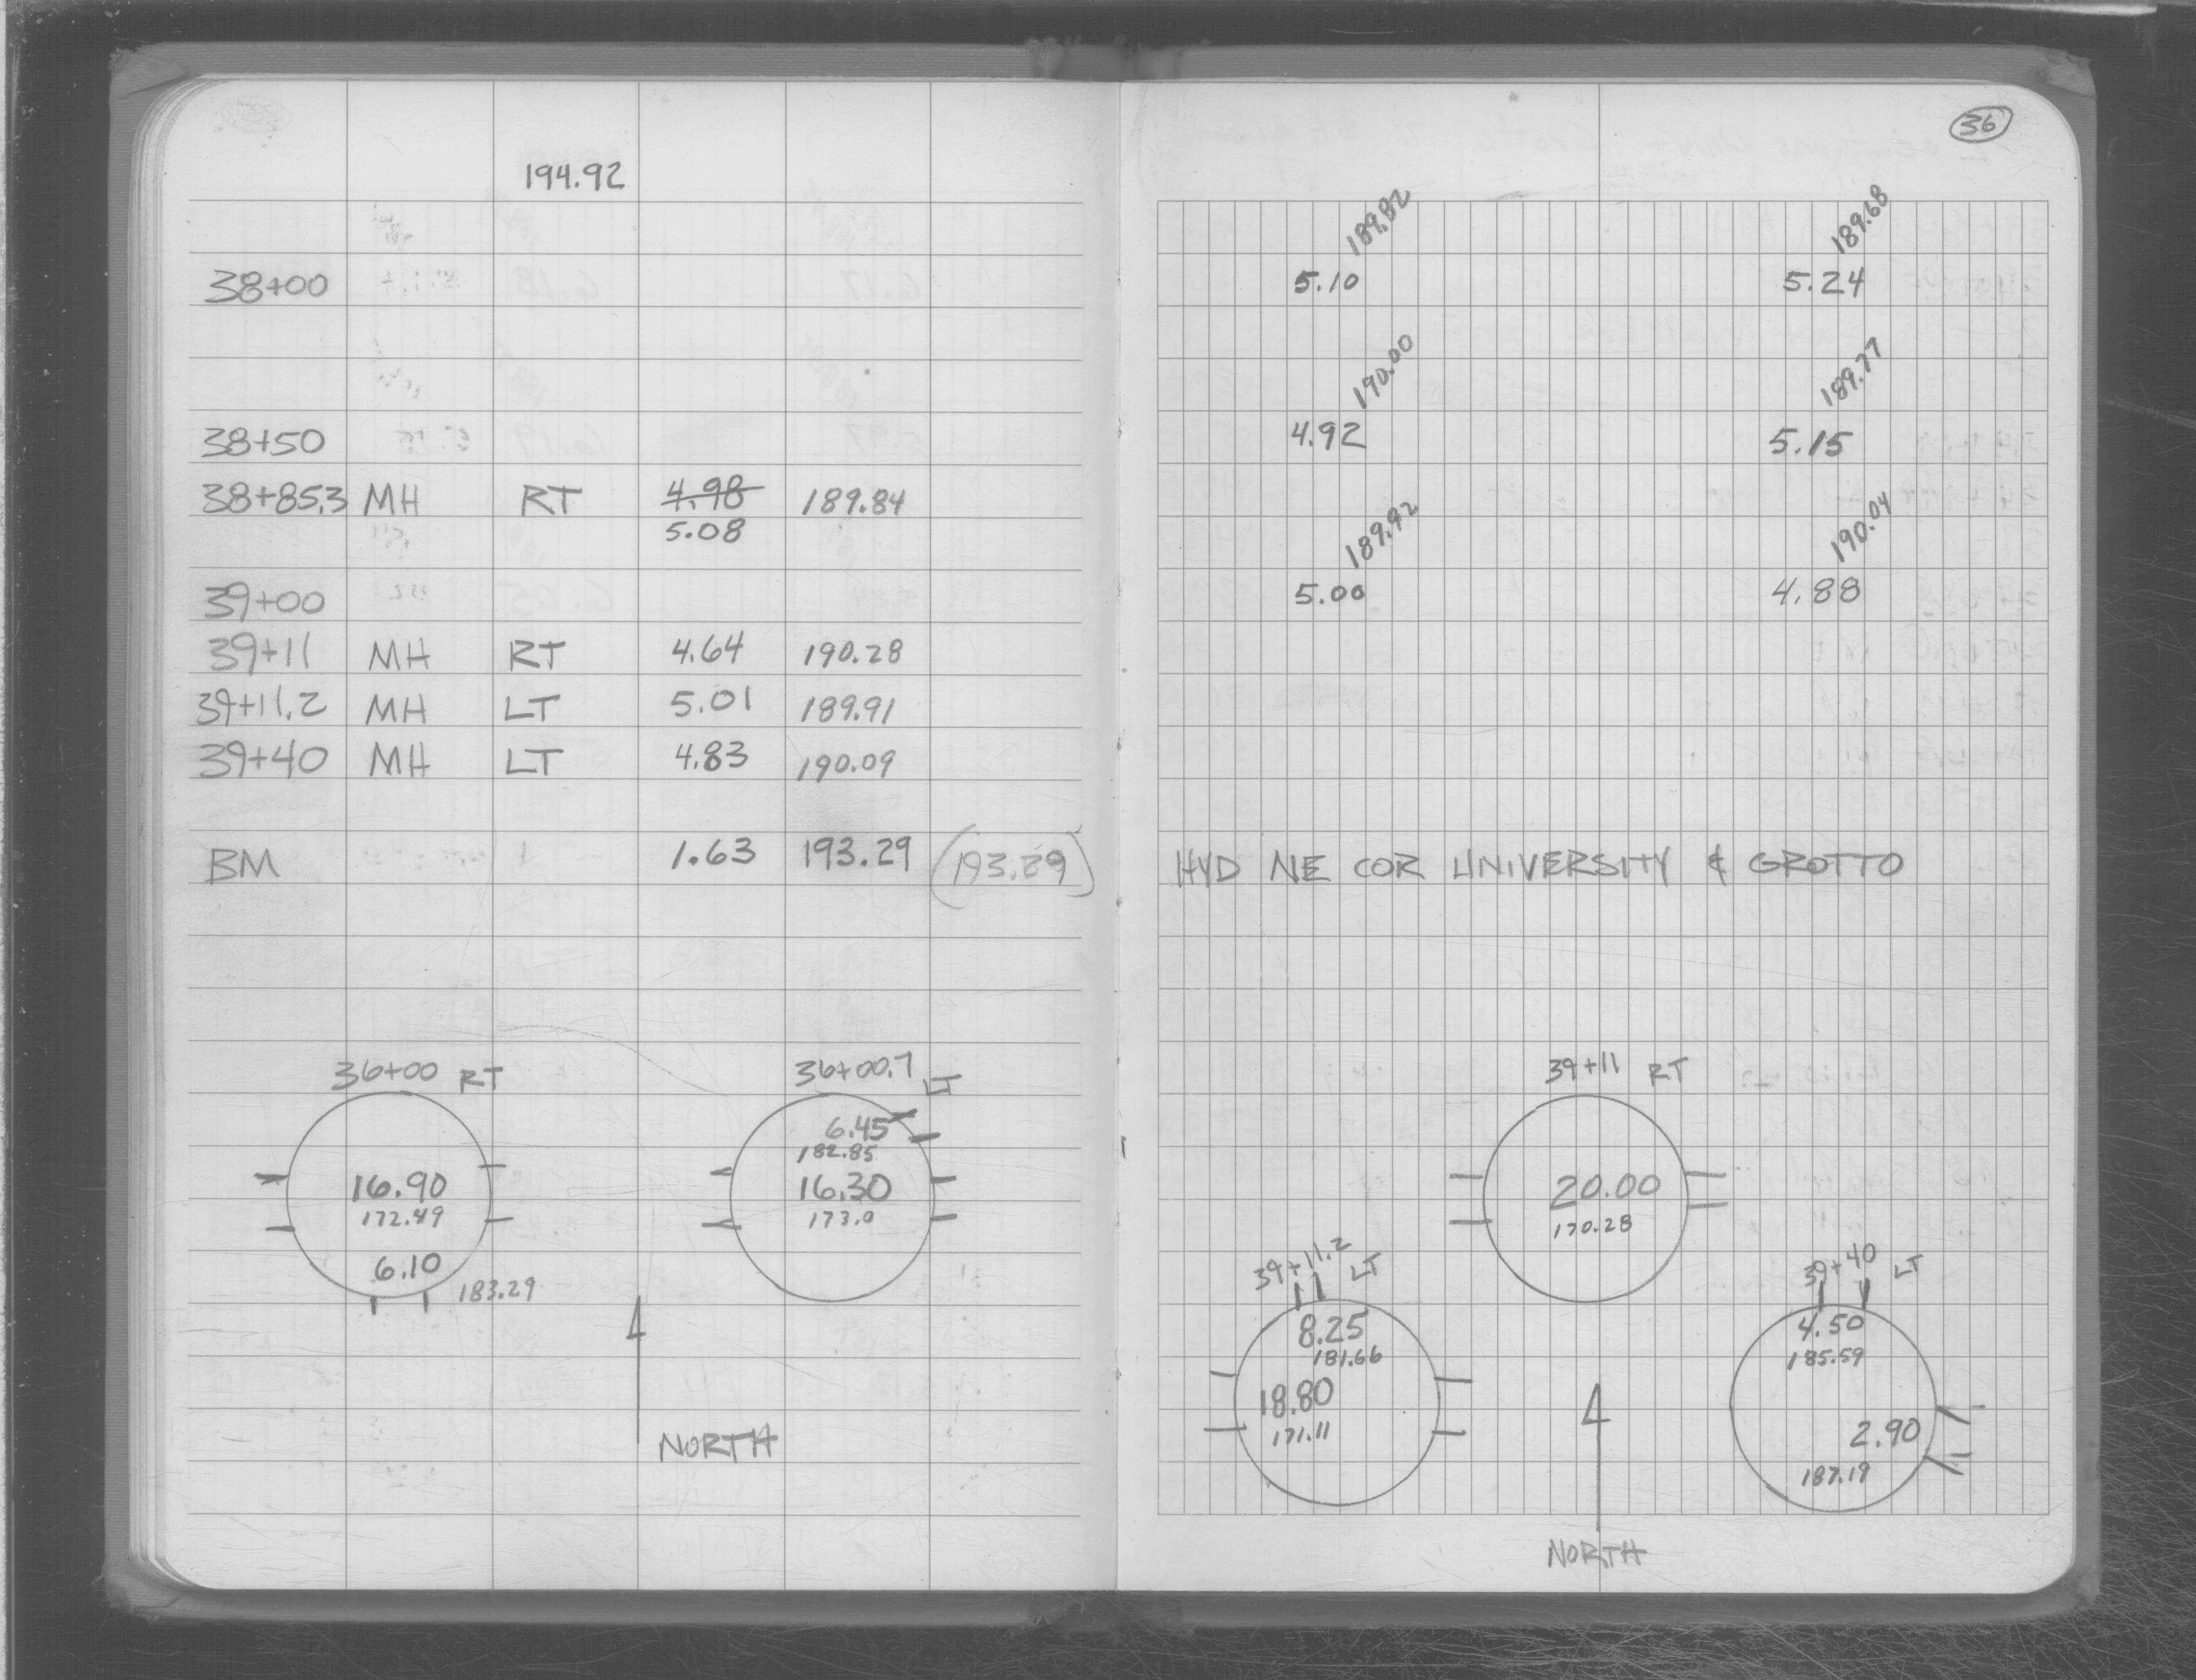 194.92
38+00
38+50
38+85.3 MH RT 4.98 189.84
5.08
39+00
39+11 MH RT 4.64 190.28
39+11.2 MH LT 5.01 189.91
39+40 MH LT 4.83 190.09
BM 1.63 193.29 (193.29)
36+00 RT
16.90
172.49
6.10
183.29
36+00.7 LT
6.45
182.85
16.30
173.0
NORTH
36
189.82 189.68
5.10 5.24
190.00 189.77
4.92 5.15
189.92 190.04
5.00 4.88
HYD NE COR UNIVERSITY & GROTTO
39+11 RT
20.00
170.28
39+11.2 LT
8.25
181.66
18.80
171.11
39+40 LT
4.50
185.59
2.90
187.19
NORTH